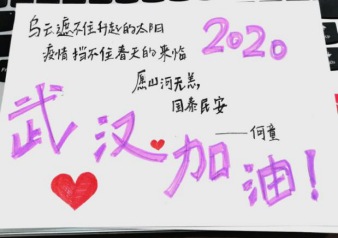 乌云遮不住升起的太阳
疫情挡不住春天的来临
2020
愿山河无恙，
国泰民安
——何童
武汉加油！